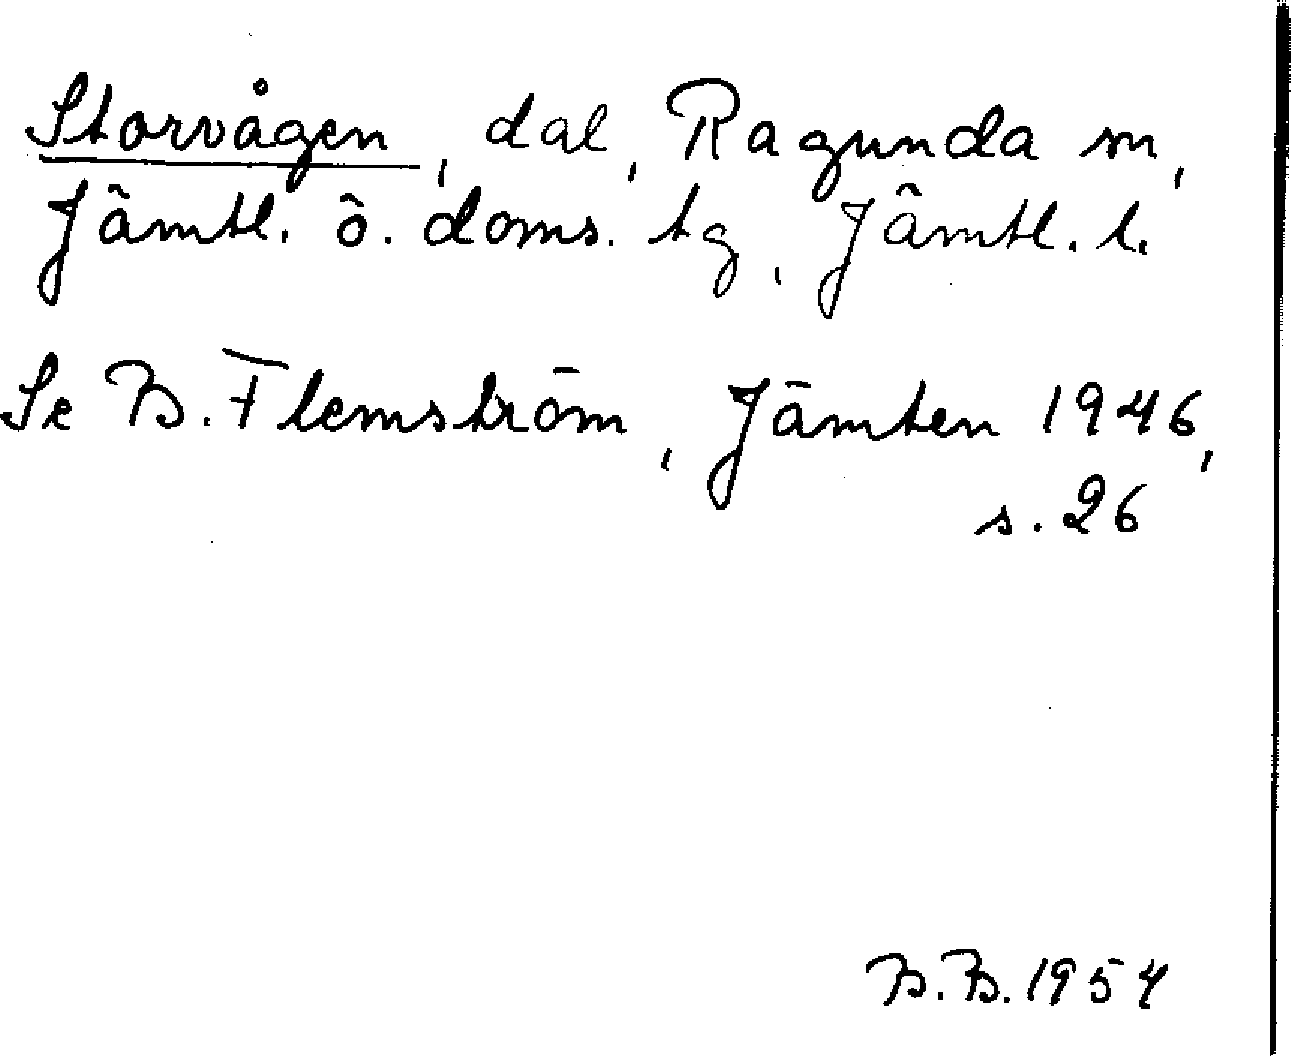 Storvågen, dal, Ragunda sn,
Jämtl. ö. doms. tg, Jämtl. l.
Se B. Flemström, Jämten 1946,
s. 26
B.B. 1954